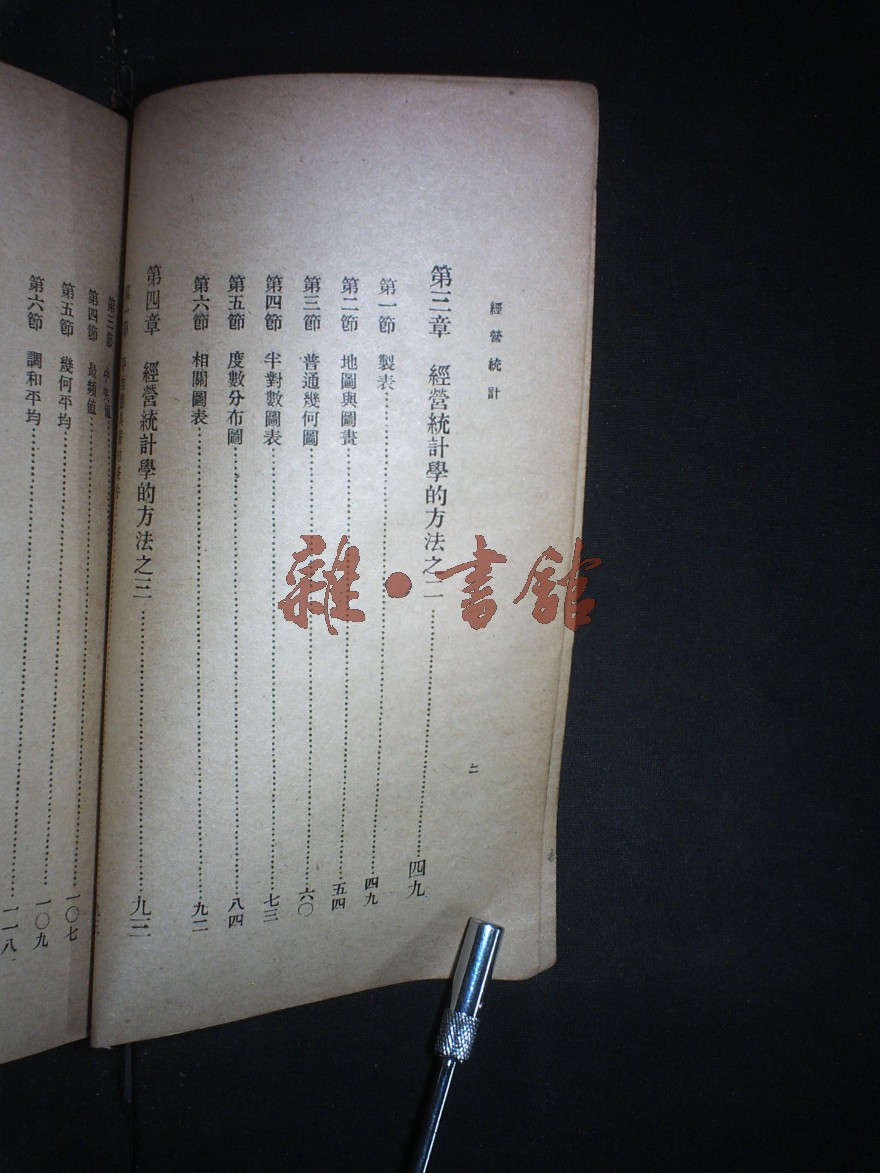 經營統計
二
第三章 經營統計學的方法之二……四九
第一節 製表……四九
第二節 地圖與圖畫……五四
第三節 普通幾何圖……六〇
第四節 半對數圖表……七三
第五節 度數分布圖……八四
第六節 相關圖表……九二
第四章 經營統計學的方法之三……九三
第三節 中央值
第四節 最頻值……一〇七
第五節 幾何平均……一〇九
第六節 調和平均……一一八
雜·書館